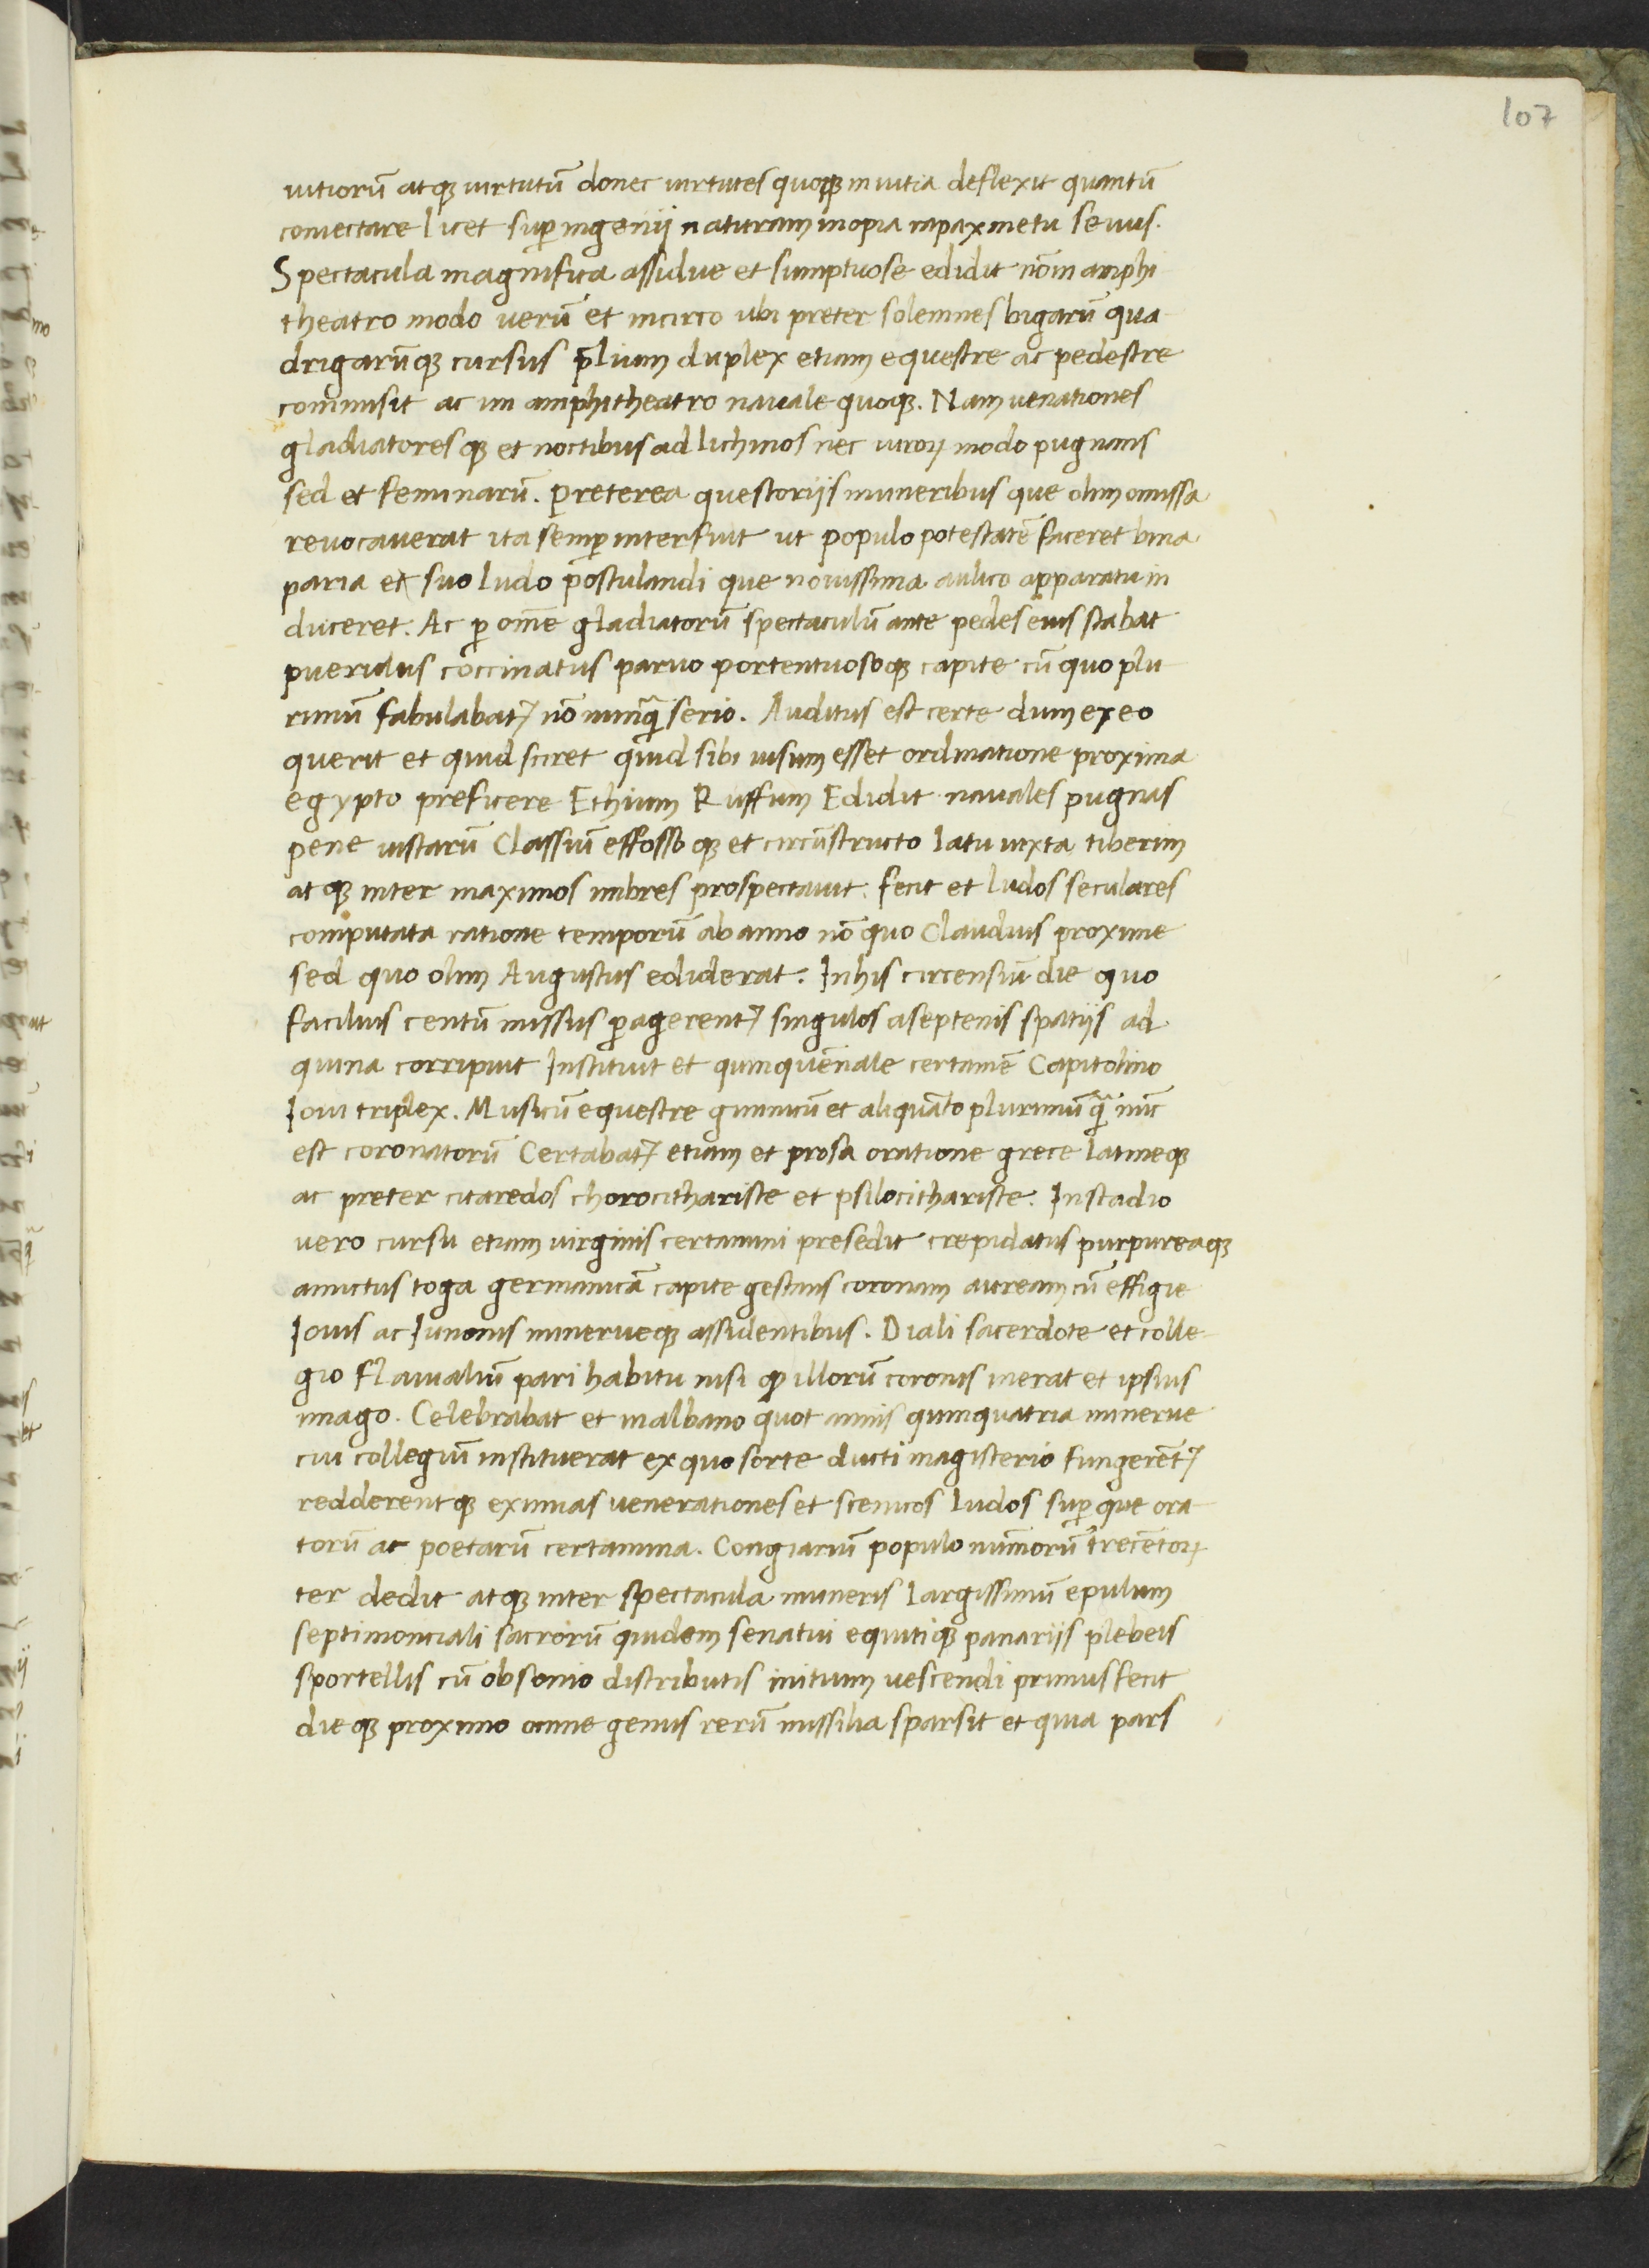 107
uitiorū atqꝫ uirtutū donec uirtutes quoqꝫ in uitia deflexit quantū
coniectare licet suꝑ ingenij naturam inopia rapax metu seuus.
Spectacula magnifica assidue et sumptuose edidit nō in amphi
theatro modo uerū et in circo ubi preter solemnes bigarū qua
drigarūqꝫ cursus p̄lium duplex etiam equestre ac pedestre
commisit ac im amphitheatro nauale quoqꝫ. Nam uenationes
gladiatoresqꝫ et noctibus ad lichinos nec uiroꝝ modo pugnans
sed et feminarū. Preterea questorijs muneribus que olim omissa
reuocauerat ita semꝑ interfuit ut populo potestatē faceret bina
paria et suo ludo postulandi que nouissima aulico apparatu in
duceret. Ac ꝑ om̄e gladiatorū spectaculū ante pedes eius stabat
puerulus coccinatus paruo portentuosoqꝫ capite cū quo plu
rimū fabulabat⁊ nō nunq̄ serio. Auditus est certe dum ex eo
querit et quid sciret quid sibi uisum esset ordinatione proxima
egypto preficere Ethium Ruffum Edidit nauales pugnas
pene iustarū Classiū effossoqꝫ et circūstructo latu iuxta tiberim
atqꝫ inter maximos imbres prospectauit. fecit et ludos seculares
computata ratione temporū ab anno nō quo Claudius proxime
sed quo olim Augustus ediderat. In his circensiū die quo
facilius centū missus ꝑagerent⁊ singulos a septenis spatijs ad
quina corripuit Instituit et quinquēnale certamē Capitolino
Ioui triplex. Musicū equestre gimnicū et aliquāto plurimū q̄ nūc
est coronatorū Certabat⁊ etiam et prosa oratione grece latineqꝫ
ac preter citaredos chorocithariste et psilocithariste. In stadio
uero cursu etiam uirginis certamini presedit crepidatus purpureaqꝫ
amictus toga germanicā capite gestans coronam auream cū effigie
Iouis ac Iunonis minerueqꝫ assidentibus. Diali sacerdote et colle
gio flauialiū pari habitu nisi ꝙ illorū coronis inerat et ipsius
imago. Celebrabat et in albano quot annis quinquatria minerue
cui collegiū instituerat ex quo sorte ducti magisterio fungerēt⁊
redderentqꝫ eximias uenerationes et scenicos ludos suꝑque ora
torū ac poetarū certamina. Congiariū populo nūmorū trecētoꝝ
ter dedit atqꝫ inter spectacula muneris largissimū epulum
septimonciali sacrorū quidem senatui equitiqꝫ panarijs plebeis
sportellis cū obsonio distributis initium uescendi primus fecit
dieqꝫ proximo omne genus rerū missilia sparsit et quia pars